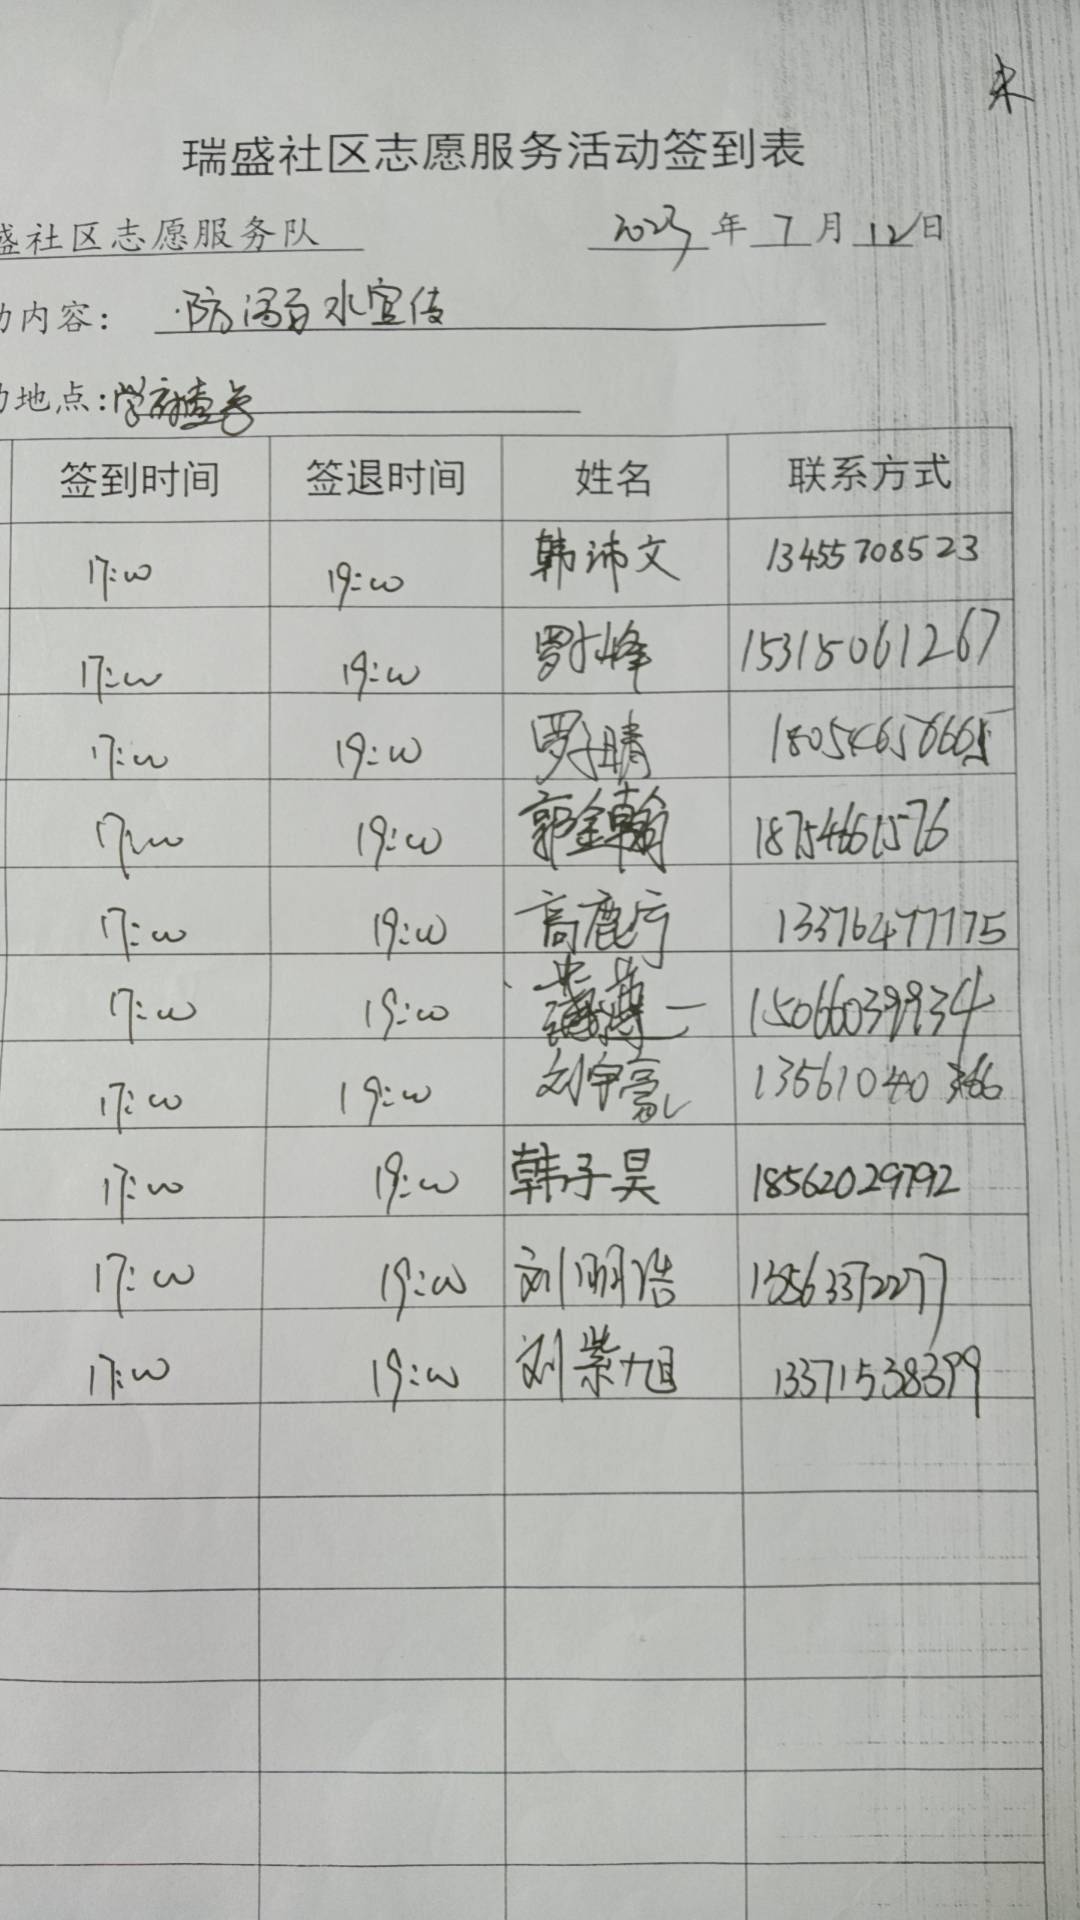 未
瑞盛社区志愿服务活动签到表
盛社区志愿服务队 2023年7月12日
动内容: 防溺水宣传
动地点:学府壹号
签到时间 签退时间 姓名 联系方式
17:00 19:00 韩沛文 13455708523
17:00 19:00 罗小峰 15315061267
17:00 19:00 罗子晴 18054656665
17:00 19:00 郭金翰 18754661576
17:00 19:00 高鹿 13376477775
17:00 19:00 15066039934
17:00 19:00 刘宇豪 13561040366
17:00 19:00 韩子昊 18562029792
17:00 19:00 刘明浩 13563372277
17:00 19:00 刘紫旭 13371538399